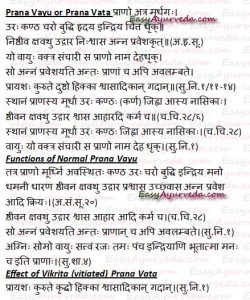 Prana Vayu or Prana Vata प्राणो अत्र मूर्धगः।
उरः कण्ठ चरो बुद्धि हृदय इन्द्रिय चित्त धृक्॥
ष्ठीवन क्षवथु उद्गार निःश्वास अन्न प्रवेशकृत्॥(अ.हृ.सू.)
यो वायुः वक्त्र संचारी स प्राणो नाम देहधृक्।
सो अन्नं प्रवेशयति अन्तः प्राणां च अपि अवलम्बते।
प्रायशः कुरुते दुष्टो हिक्का श्वासादिकान् गदान्।(सु.नि.१/११-१४)
स्थानं प्राणस्य मूर्धा उरः कण्ठः (कर्ण) जिह्वा आस्य नासिकाः।
ष्ठीवन क्षवथु उद्गार श्वास आहारदि कर्म च॥(च.चि.२८/६)
स्थानं प्राणस्य मूर्धा उरः कण्ठः जिह्वा आस्य नासिकाः।(च.चि.२८)
वायुः यो वक्त्र संचारी स प्राणो नाम देहधृक्।(सु.नि.१)
Functions of Normal Prana Vayu
तत्र प्राणो मूर्ध्नि अवस्थितः कण्ठ उरः चरो बुद्धि इन्द्रिय मनो
धमनी धारण ष्ठीवन क्षवथु उद्गार प्रश्वास उच्छ्वास अन्न प्रवेश
आदि क्रियः।(अ.सं.सू.२०)
ष्ठीवन क्षवथु उद्गार श्वास आहार आदि कर्म च।(च.चि.२८)
सो अन्नं प्रवेशयति अन्तः प्राणान् च अपि अवलम्बते।(सु.नि.१)
अग्निः सोमो वायुः सत्वं रजः तमः पंच इन्द्रियाणि भूतात्मा मनः
च इति प्राणाः।(सु.शा.४)
Effect of Vikrita (vitiated) Prana Vata
प्रायशः कुरुते क्रुद्धो हिक्का श्वासादिकान् गदान्।(सु.नि.१)
EasyAyurveda.com